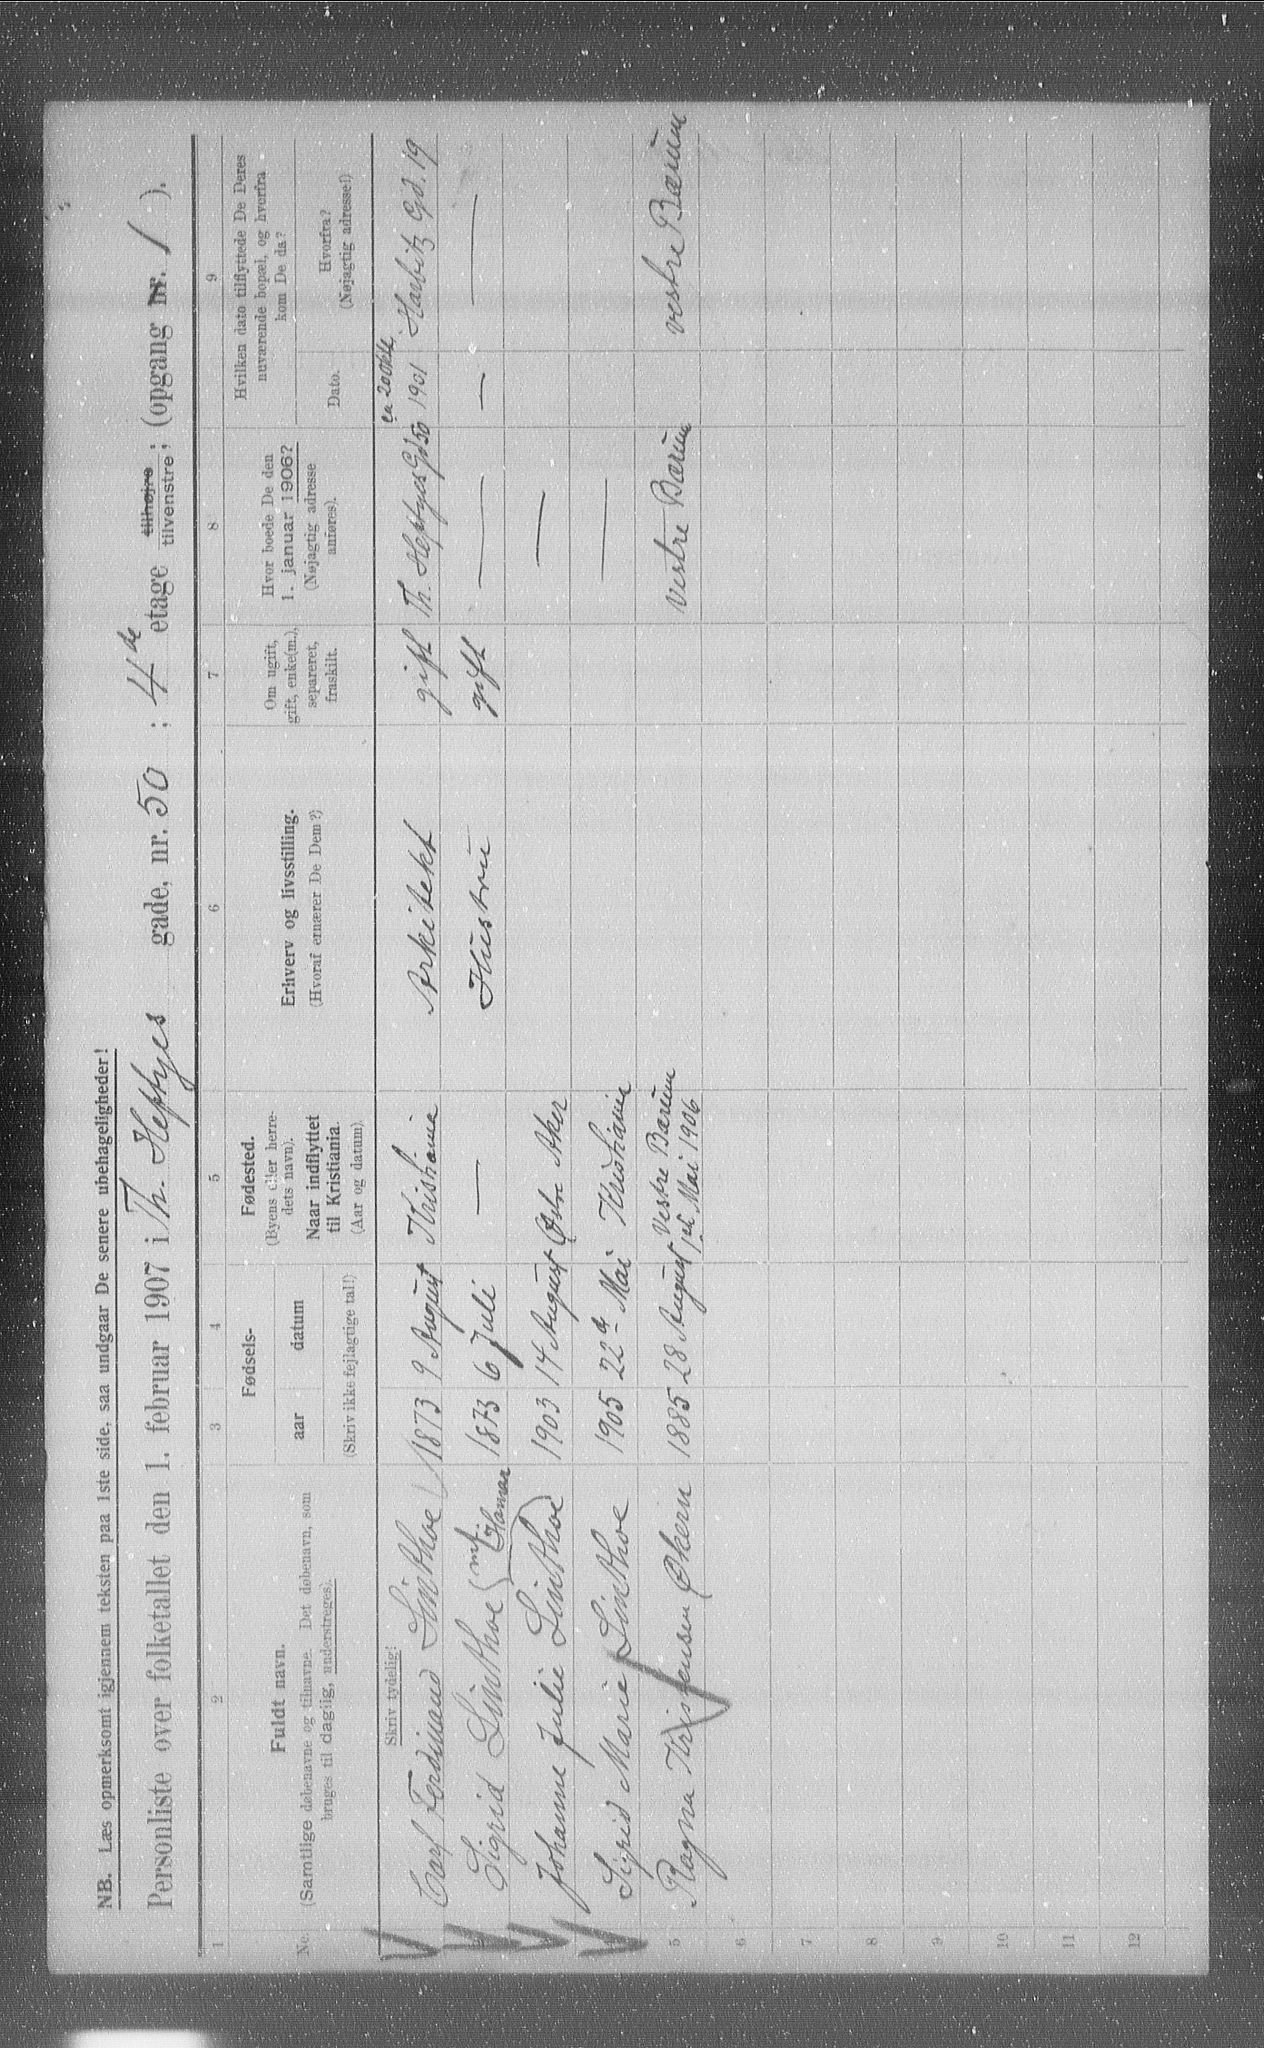 NB. Læs opmerksomt igjennem teksten paa 1ste side, saa undgaar De senere ubehageligheder!
Personliste over folketallet den 1. februar 1907 i Th. Heftyes gade, nr. 50 ; 4de etage tilhøjre tilvenstre ; (opgang nr. 1 ).
1 2 3 4 5 6 7 8 9
No.
Fuldt navn.
(Samtlige døbenavne og tilnavne. Det døbenavn, som
bruges til daglig, understreges).
Fødsels-
aar datum
(Skriv ikke fejlagtige tal!)
Fødested.
(Byens eller herre-
dets navn).
Naar indflyttet
til Kristiania.
(Aar og datum).
Erhverv og livsstilling.
(Hvoraf ernærer De Dem?)
Om ugift,
gift, enke(m.),
separeret,
fraskilt.
Hvor boede De den
1. januar 1906?
(Nøjagtig adresse
anføres).
Hvilken dato tilflyttede De Deres
nuværende bopæl, og hvorfra
kom De da?
Dato.
Hvorfra?
(Nøjagtig adresse!)
Skriv tydelig!
ca 20 Okt.
Carl Ferdinand Linthoe 1873 9 August Kristiania Arkitekt gift Th. Heftyes Gd 50 1901 Harbitz Gd. 19
Sigrid Linthoe 1873 6 Juli — Hustru gift — — —
Johanne Julie Linthoe 1903 14 August Østre Aker —
Sigrid Marie Linthoe 1905 22de Mai Kristiania —
5 Ragna Kristensen Økern 1885 28 August Vestre Bærum Mai 1906 Vestre Bærum vestre Bærum
6
7
8
9
10
11
12